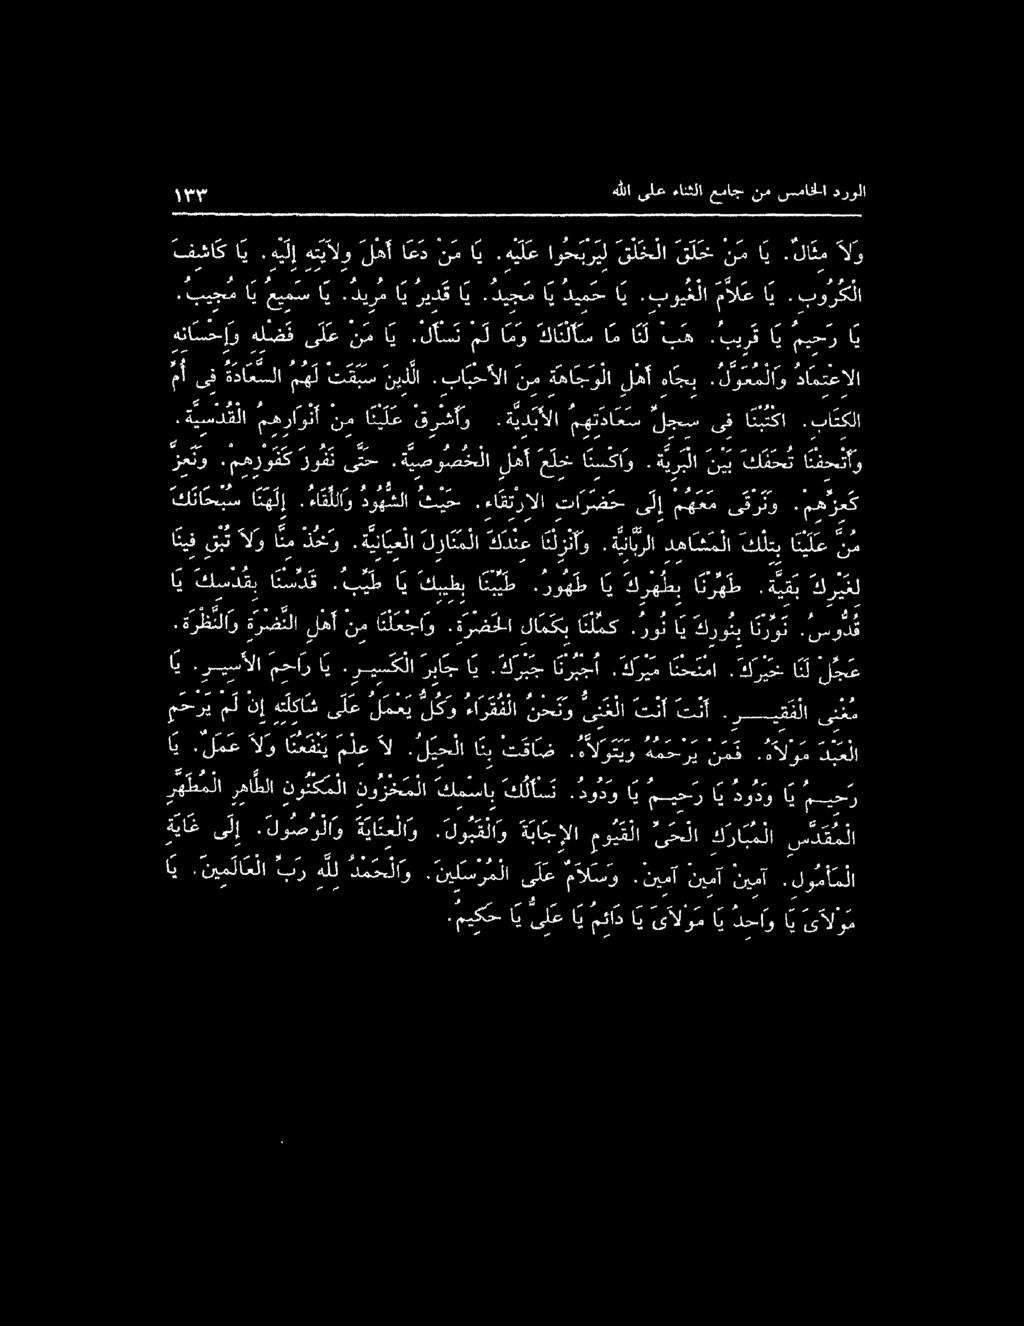 الورد الخامس من جامع الثناء على الله ١٣٣
وَلاَ مِثَالٌ. يَا مَنْ خَلَقَ الْخَلْقَ لِيَرْبَحُوا عَلَيْهِ. يَا مَنْ دَعَا أَهْلَ وِلاَيَتِهِ إِلَيْهِ. يَا كَاشِفَ
الْكُرُوبِ. يَا عَلاَّمَ الْغُيوبِ. يَا حَمِيدُ يَا مَجِيدُ. يَا قَدِيرُ يَا مُرِيدُ. يَا سَمِيعُ يَا مُجِيبُ.
يَا رَحِيمُ يَا قَرِيبُ. هَبْ لَنَا مَا سَأَلْنَاكَ وَمَا لَمْ نَسْأَلْ. يَا مَنْ عَلَى فَضْلِهِ وَإِحْسَانِهِ
الاِعْتِمَادُ وَالْمُعَوَّلُ. بِجَاهِ أَهْلِ الْوَجَاهَةِ مِنَ الأَحْبَابِ. الَّذِينَ سَبَقَتْ لَهُمُ السَّعَادَةُ فِى أُمِّ
الكِتَابِ. اكْتُبْنَا فِى سِجِلِّ سَعَادَتِهِمُ الأَبَدِيَّةِ. وَأَشْرِقْ عَلَيْنَا مِنْ أَنْوَارِهِمُ الْقُدْسِيَّةِ.
وَأَتْحِفْنَا تُحَفَكَ بَيْنَ الْبَرِيَّةِ. وَاكْسِنَا خِلَعَ أَهْلِ الْخُصُوصِيَّةِ. حَتَّى نَفُوزَ كَفَوْزِهِمْ. وَنَعِزَّ
كَعِزِّهِمْ. وَنَرْقَى مَعَهُمْ إِلَى حَضَرَاتِ الاِرْتِقَاءِ. حَيْثُ الشُّهُودُ وَاللِّقَاءُ. إِلَهَنَا سُبْحَانَكَ
مُنَّ عَلَيْنَا بِتِلْكَ الْمَشَاهِدِ الرَّبَّانِيَّةِ. وَأَنْزِلْنَا عِنْدَكَ الْمَنَازِلَ الْعِيَانِيَّةَ. وَخُذْ مِنَّا وَلاَ تُبْقِ فِينَا
لِغَيْرِكَ بَقِيَّةً. طَهِّرْنَا بِطُهْرِكَ يَا طَهُورُ. طَيِّبْنَا بِطِيبِكَ يَا طَيِّبُ. قَدِّسْنَا بِقُدْسِكَ يَا
قُدُّوسُ. نَوِّرْنَا بِنُورِكَ يَا نُورُ. كَمِّلْنَا بِكَمَالِ الْحَضْرَةِ. وَاجْعَلْنَا مِنْ أَهْلِ النَّضْرَةِ وَالنَّظْرَةِ.
عَجِّلْ لَنَا خَيْرَكَ. امْنَحْنَا مَيْرَكَ. اُجْبُرْنَا جَبْرَكَ. يَا جَابِرَ الْكَسِيرِ. يَا رَاحِمَ الأَسِيرِ. يَا
مُغْنِى الْفَقِيرِ. أَنْتَ أَنْتَ الْغَنِىُّ وَنَحْنُ الْفُقَرَاءُ وَكُلٌّ يَعْمَلُ عَلَى شَاكِلَتِهِ إِنْ لَمْ يَرْحَمِ
الْعَبْدَ مَوْلاَهُ. فَمَنْ يَرْحَمُهُ وَيَتَوَلاَّهُ. ضَاقَتْ بِنَا الْحِيَلُ. لاَ عِلْمَ يَنْفَعُنَا وَلاَ عَمَلٌ. يَا
رَحِيمُ يَا وَدُودُ يَا رَحِيمُ يَا وَدُودُ. نَسْأَلُكَ بِاسْمِكَ الْمَخْزُونِ الْمَكْنُونِ الطَّاهِرِ الْمُطَهَّرِ
الْمُقَدَّسِ الْمُبَارَكِ الْحَىِّ الْقَيُّومِ الإِجَابَةَ وَالْقَبُولَ. وَالْعِنَايَةَ وَالْوُصُولَ. إِلَى غَايَةِ
الْمَأْمُولِ. آمِينَ آمِينَ آمِينَ. وَسَلاَمٌ عَلَى الْمُرْسَلِينَ. وَالْحَمْدُ لِلَّهِ رَبِّ الْعَالَمِينَ. يَا
مَوْلاَىَ يَا وَاحِدُ يَا مَوْلاَىَ يَا دَائِمُ يَا عَلِىُّ يَا حَكِيمُ.